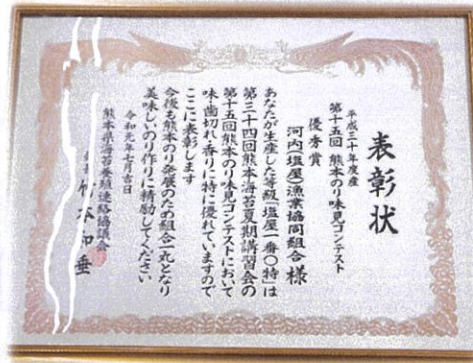 表彰状
平成三十年度産
第十五回 熊本のり味見コンテスト
優秀賞
河内塩屋漁業協同組合 様
あなたが生産した等級「塩屋一番〇特」は
第三十四回熊本海苔夏期講習会の
第十五回熊本のり味見コンテストにおいて
味・歯切れ・香りに特に優れていますので
ここに表彰します
今後も熊本のり発展のため組合一丸となり
美味しいのり作りに精励してください
令和元年七月吉日
熊本県海苔養殖連絡協議会
竹本和垂